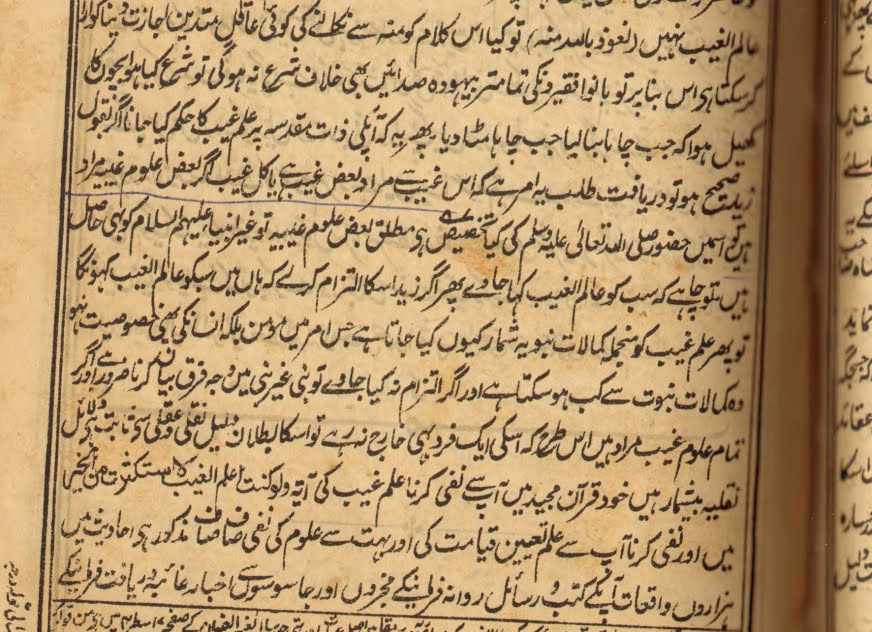 عالم الغیب نہیں (نعوذ باللہ منہ) تو کیا اس کلام کو منہ سے نکالنے کی کوئی عاقل متدین اجازت دینا گوارا
کرسکتا ہی اس بنا پر تو بانوا فقیرونکی تمامتر بیہودہ صدائیں بھی خلاف شرع نہ ہوگی تو شرع کیا ہوا بچون کا
کھیل ہوا کہ جب چاہا بنا لیا جب چاہا مٹا دیا۔ پھر یہ کہ آپکی ذات مقدسہ پر علم غیب کا حکم کیا جانا اگر بقول
زید صحیح ہو تو دریافت طلب یہ امر ہے کہ اس غیب سے مراد بعض غیب ہے یا کل غیب اگر بعض علوم غیبیہ مراد
ہیں تو اسمیں حضور صلی اللہ تعالی علیہ وسلم کی کیا تخصیص ہی مطلق بعض علوم غیبیہ تو غیر انبیا علیہم السلام کو بھی حاصل
ہیں تو چاہیے کہ سب کو عالم الغیب کہا جاوے پھر اگر زید اسکا التزام کرلے کہ ہاں میں سبکو عالم الغیب کہونگا
تو پھر علم غیب کو منجملہ کمالات نبویہ شمار کیوں کیا جاتا ہے جس امر میں مومن بلکہ انسانکی بھی خصوصیت نہو
وہ کمالات نبوت سے کب ہو سکتا ہے اور اگر التزام نہ کیا جاوے تو نبی غیر نبی میں وجہ فرق بیان کرنا ضرور ہے اور اگر
تمام علوم غیب مراد ہیں اس طرح کہ اسکی ایک فرد بھی خارج نہ رہے تو اسکا بطلان دلیل نقلی و عقلی سے ثابت ہی دلائل
نقلیہ بیشمار ہیں خود قرآن مجید میں آپ سے نفی کرنا علم غیب کی آیۃ ولو کنت اعلم الغیب لاستکثرت من الخیر
میں اور نفی کرنا آپ سے علم تعیین قیامت کی اور بہت سے علوم کی نفی صاف صاف مذکور ہی احادیث میں
ہزاروں واقعات آپکے کتب و رسائل روانہ فرمانیکے مخبروں اور جاسوسوں سے اخبار غائبہ دریافت فرمانیکے